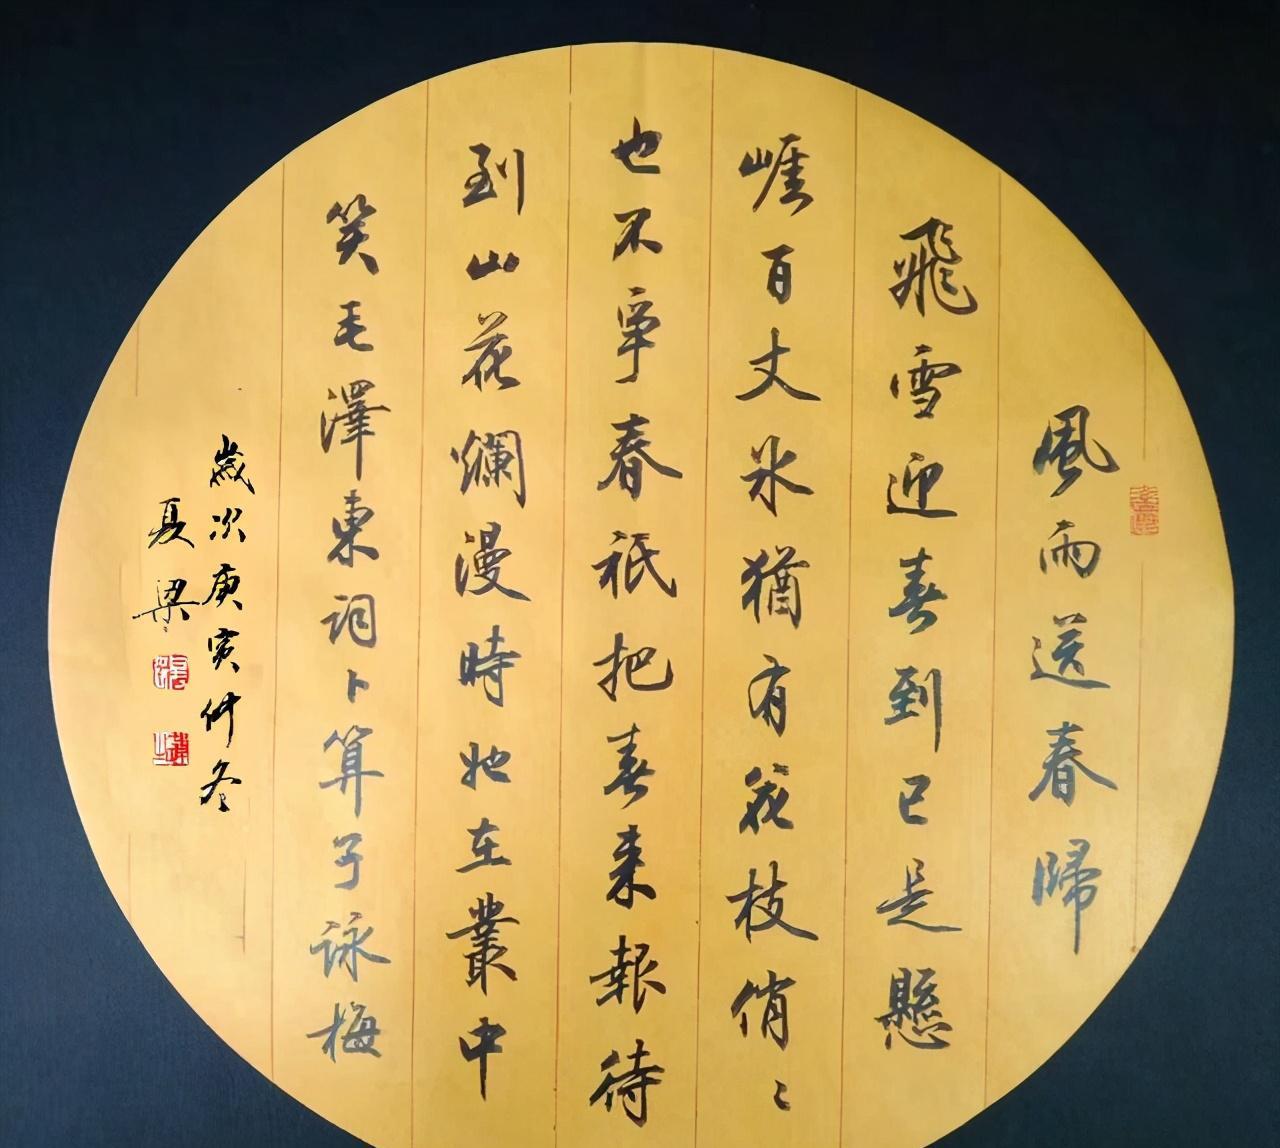 風雨送春歸
飛雪迎春到已是懸
崕百丈氷猶有花枝俏〻
也不爭春祇把春來報待
到山花爛漫時她在叢中
笑毛澤東詞卜算子詠梅
歲次庚寅仲冬
夏梁